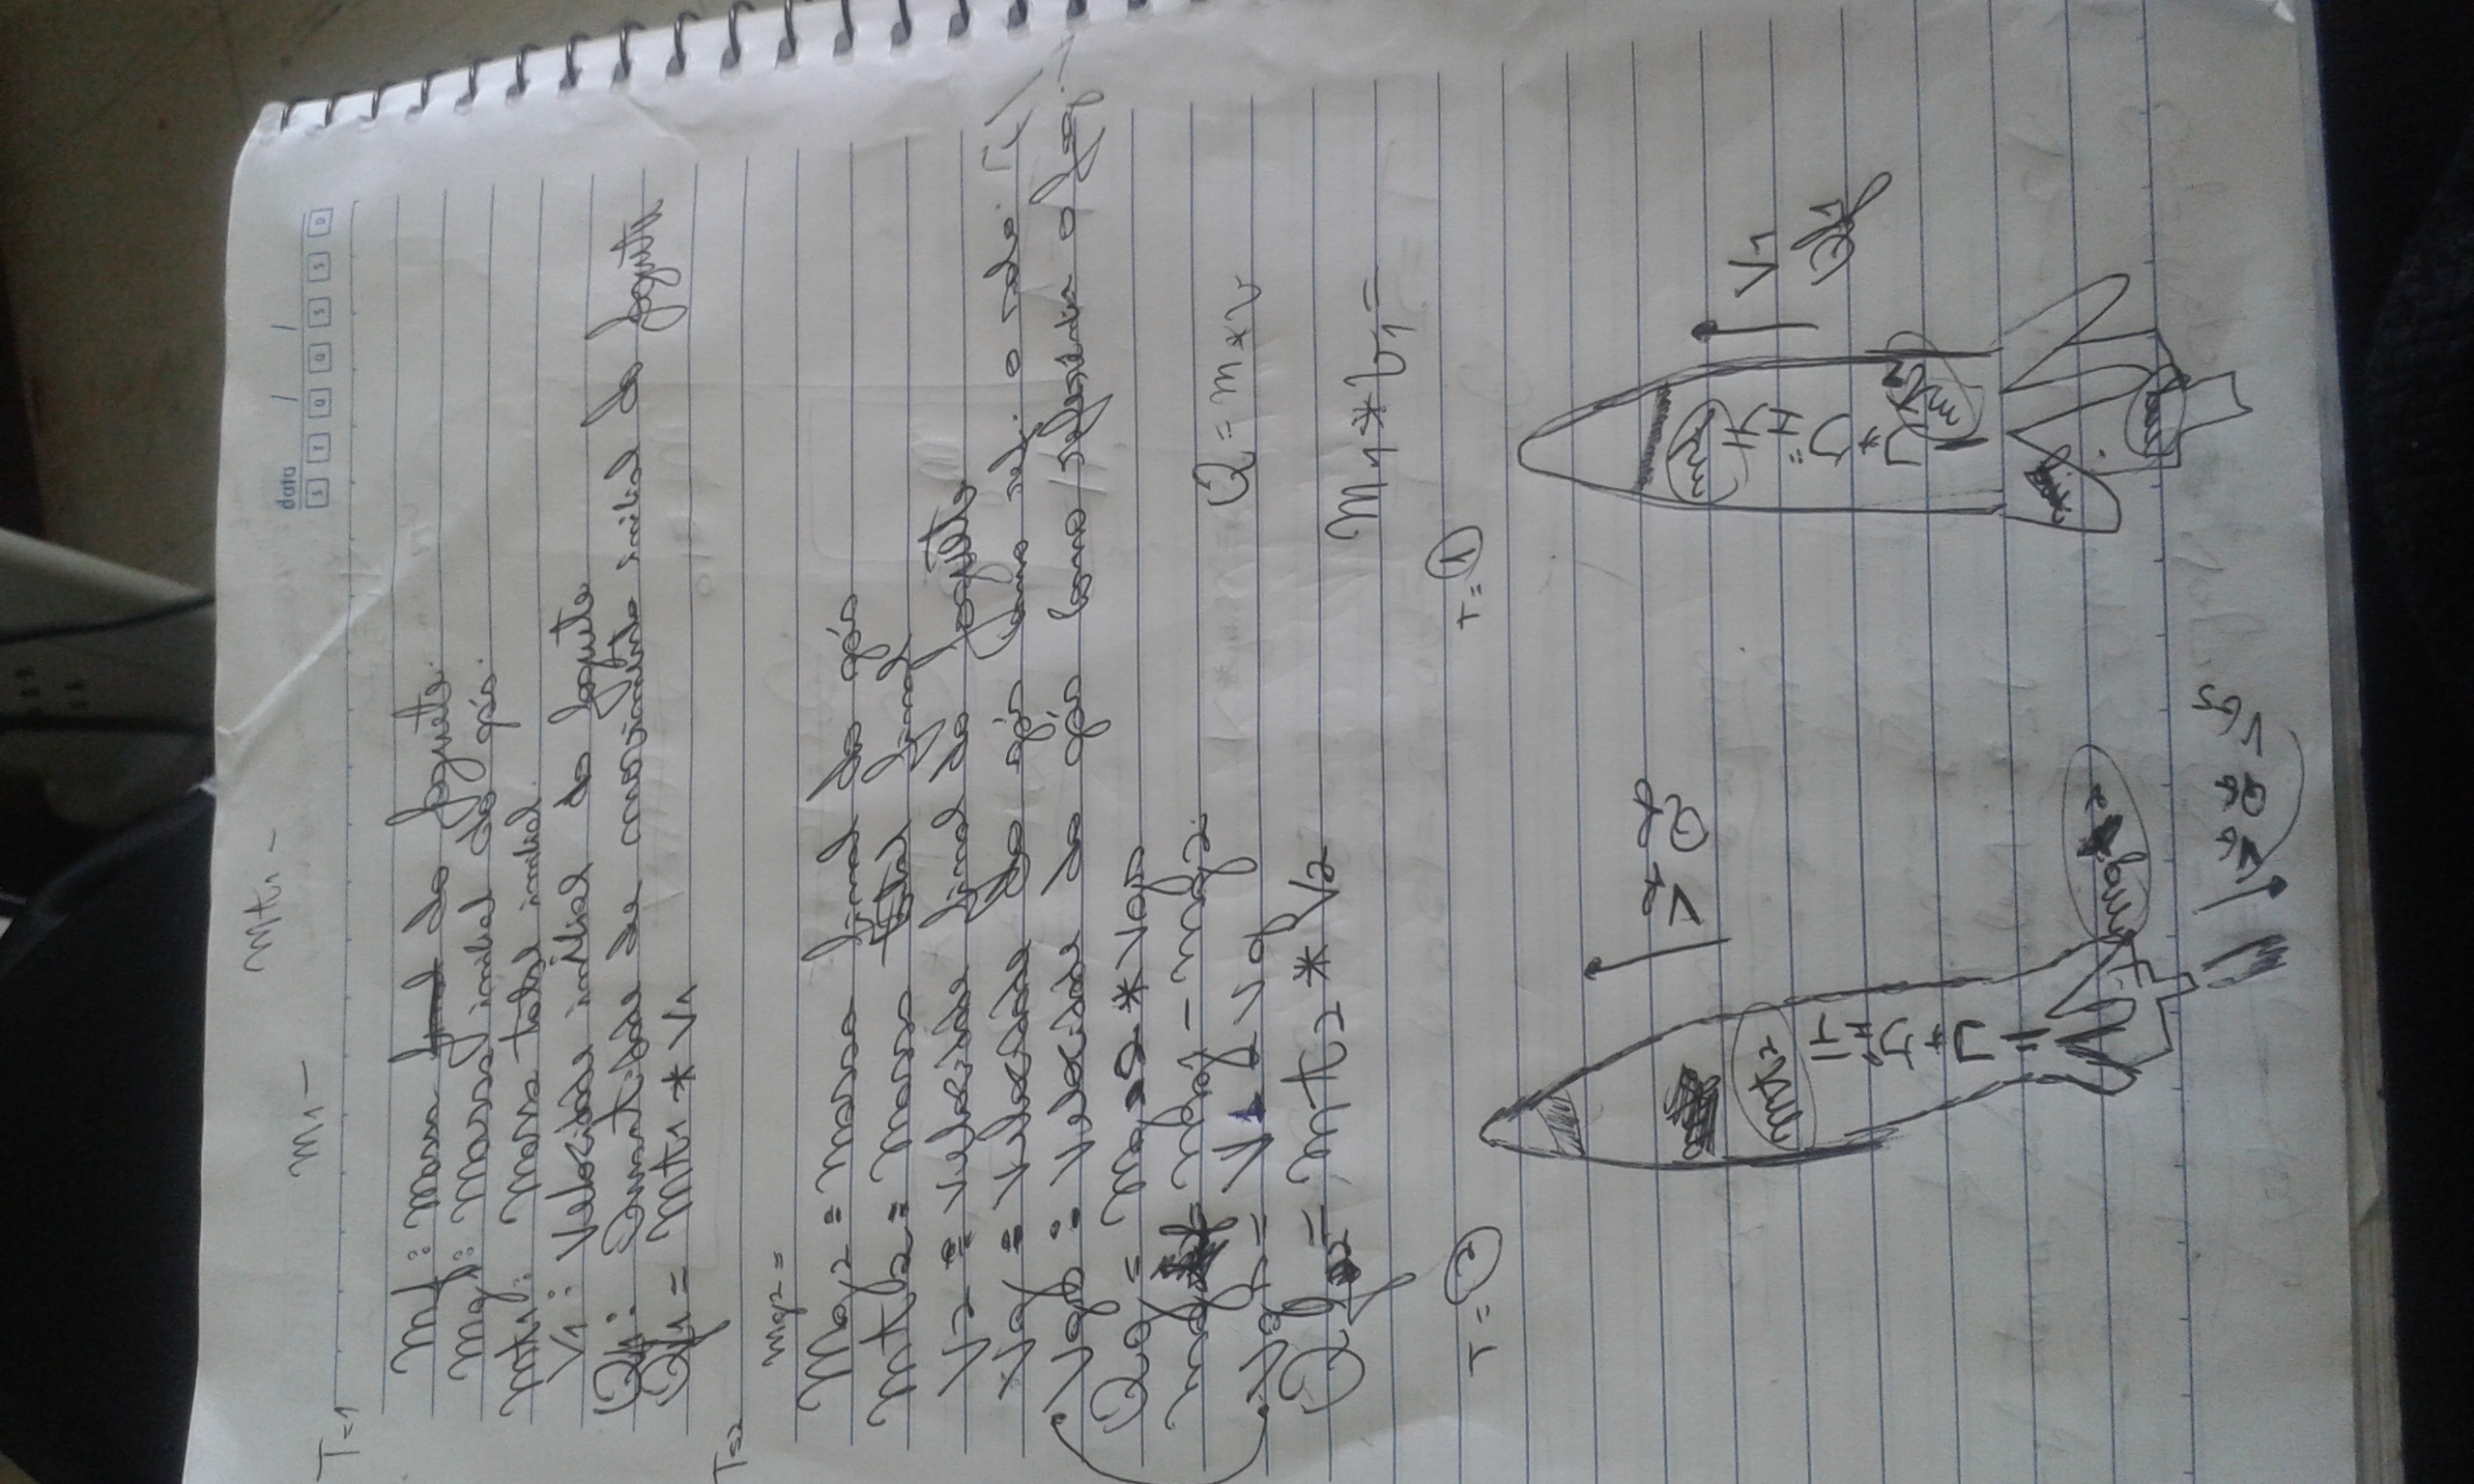 mt1 -
m1 -
data / /
S T Q Q S S D
T=1
Mf: Massa do foguete.
Mg1: Massa inicial do gás.
Mt1: Massa total inicial.
V1: Velocidade inicial do foguete
Qf1: Quantidade de movimento inicial do foguete
Qf1 = Mt1 * V1
T=2
mg2 =
Mg2 = massa final do gás
Mt2 = massa total final
V2 = velocidade final do foguete
Vg = Velocidade do gás como ref. o solo.
Vgs = Velocidade do gás como referencia o fog.
Qg = Mg2 * Vgs
mg = mg1 - mg2
Vgs = V1 - Vg
Qf2 = mt2 * V2
Q = m * v
M1 * v1 =
T = 2
T = 1
Vf
Qf
mt2
フォゲェテ
mg2
VG
QG
VGS
mf
フォゲェテ
mt2
V1
Qf1
mg